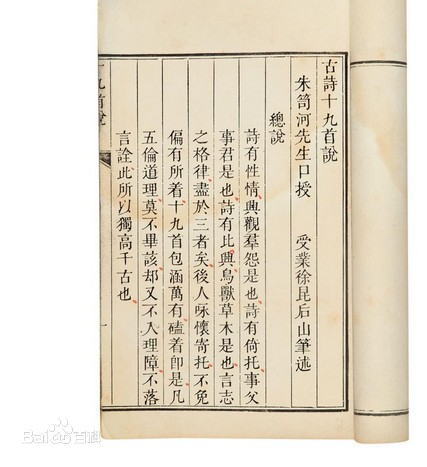 古詩十九首說
朱笥河先生口授　受業徐昆后山筆述
總說
詩有性情興觀羣怨是也詩有倚托事父
事君是也詩有比興鳥獸草木是也言志
之格律盡於三者矣後人咏懷寄托不免
偏有所着十九首包涵萬有磕着即是凡
五倫道理莫不畢該却又不入理障不落
言詮此所以獨高千古也
十九首說
一
Bai百科